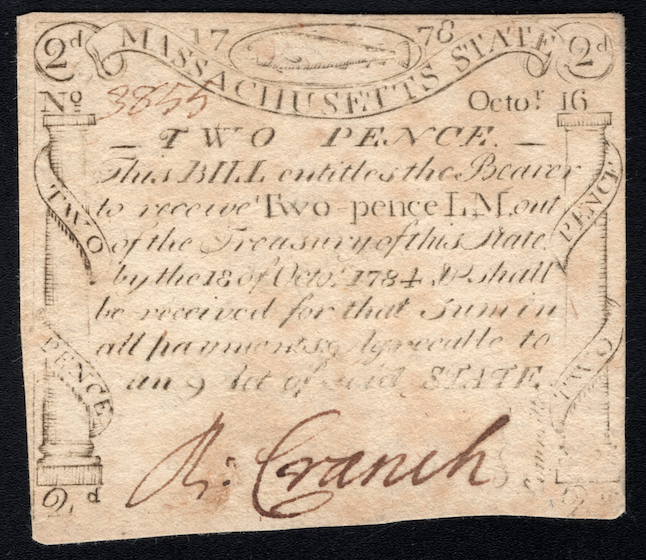 2d 17 78 2d
MASSACHUSETTS STATE
No 3855 Octor 16
TWO PENCE.
This BILL entitles the Bearer
to receive Two-pence L.M. out
of the Treasury of this State
by the 18 of Octr. 1784 & shall
be received for that Sum in
all payments Agreeable to
an Act of said STATE
TWO
PENCE
PENCE
TWO
R: Cranch
2d